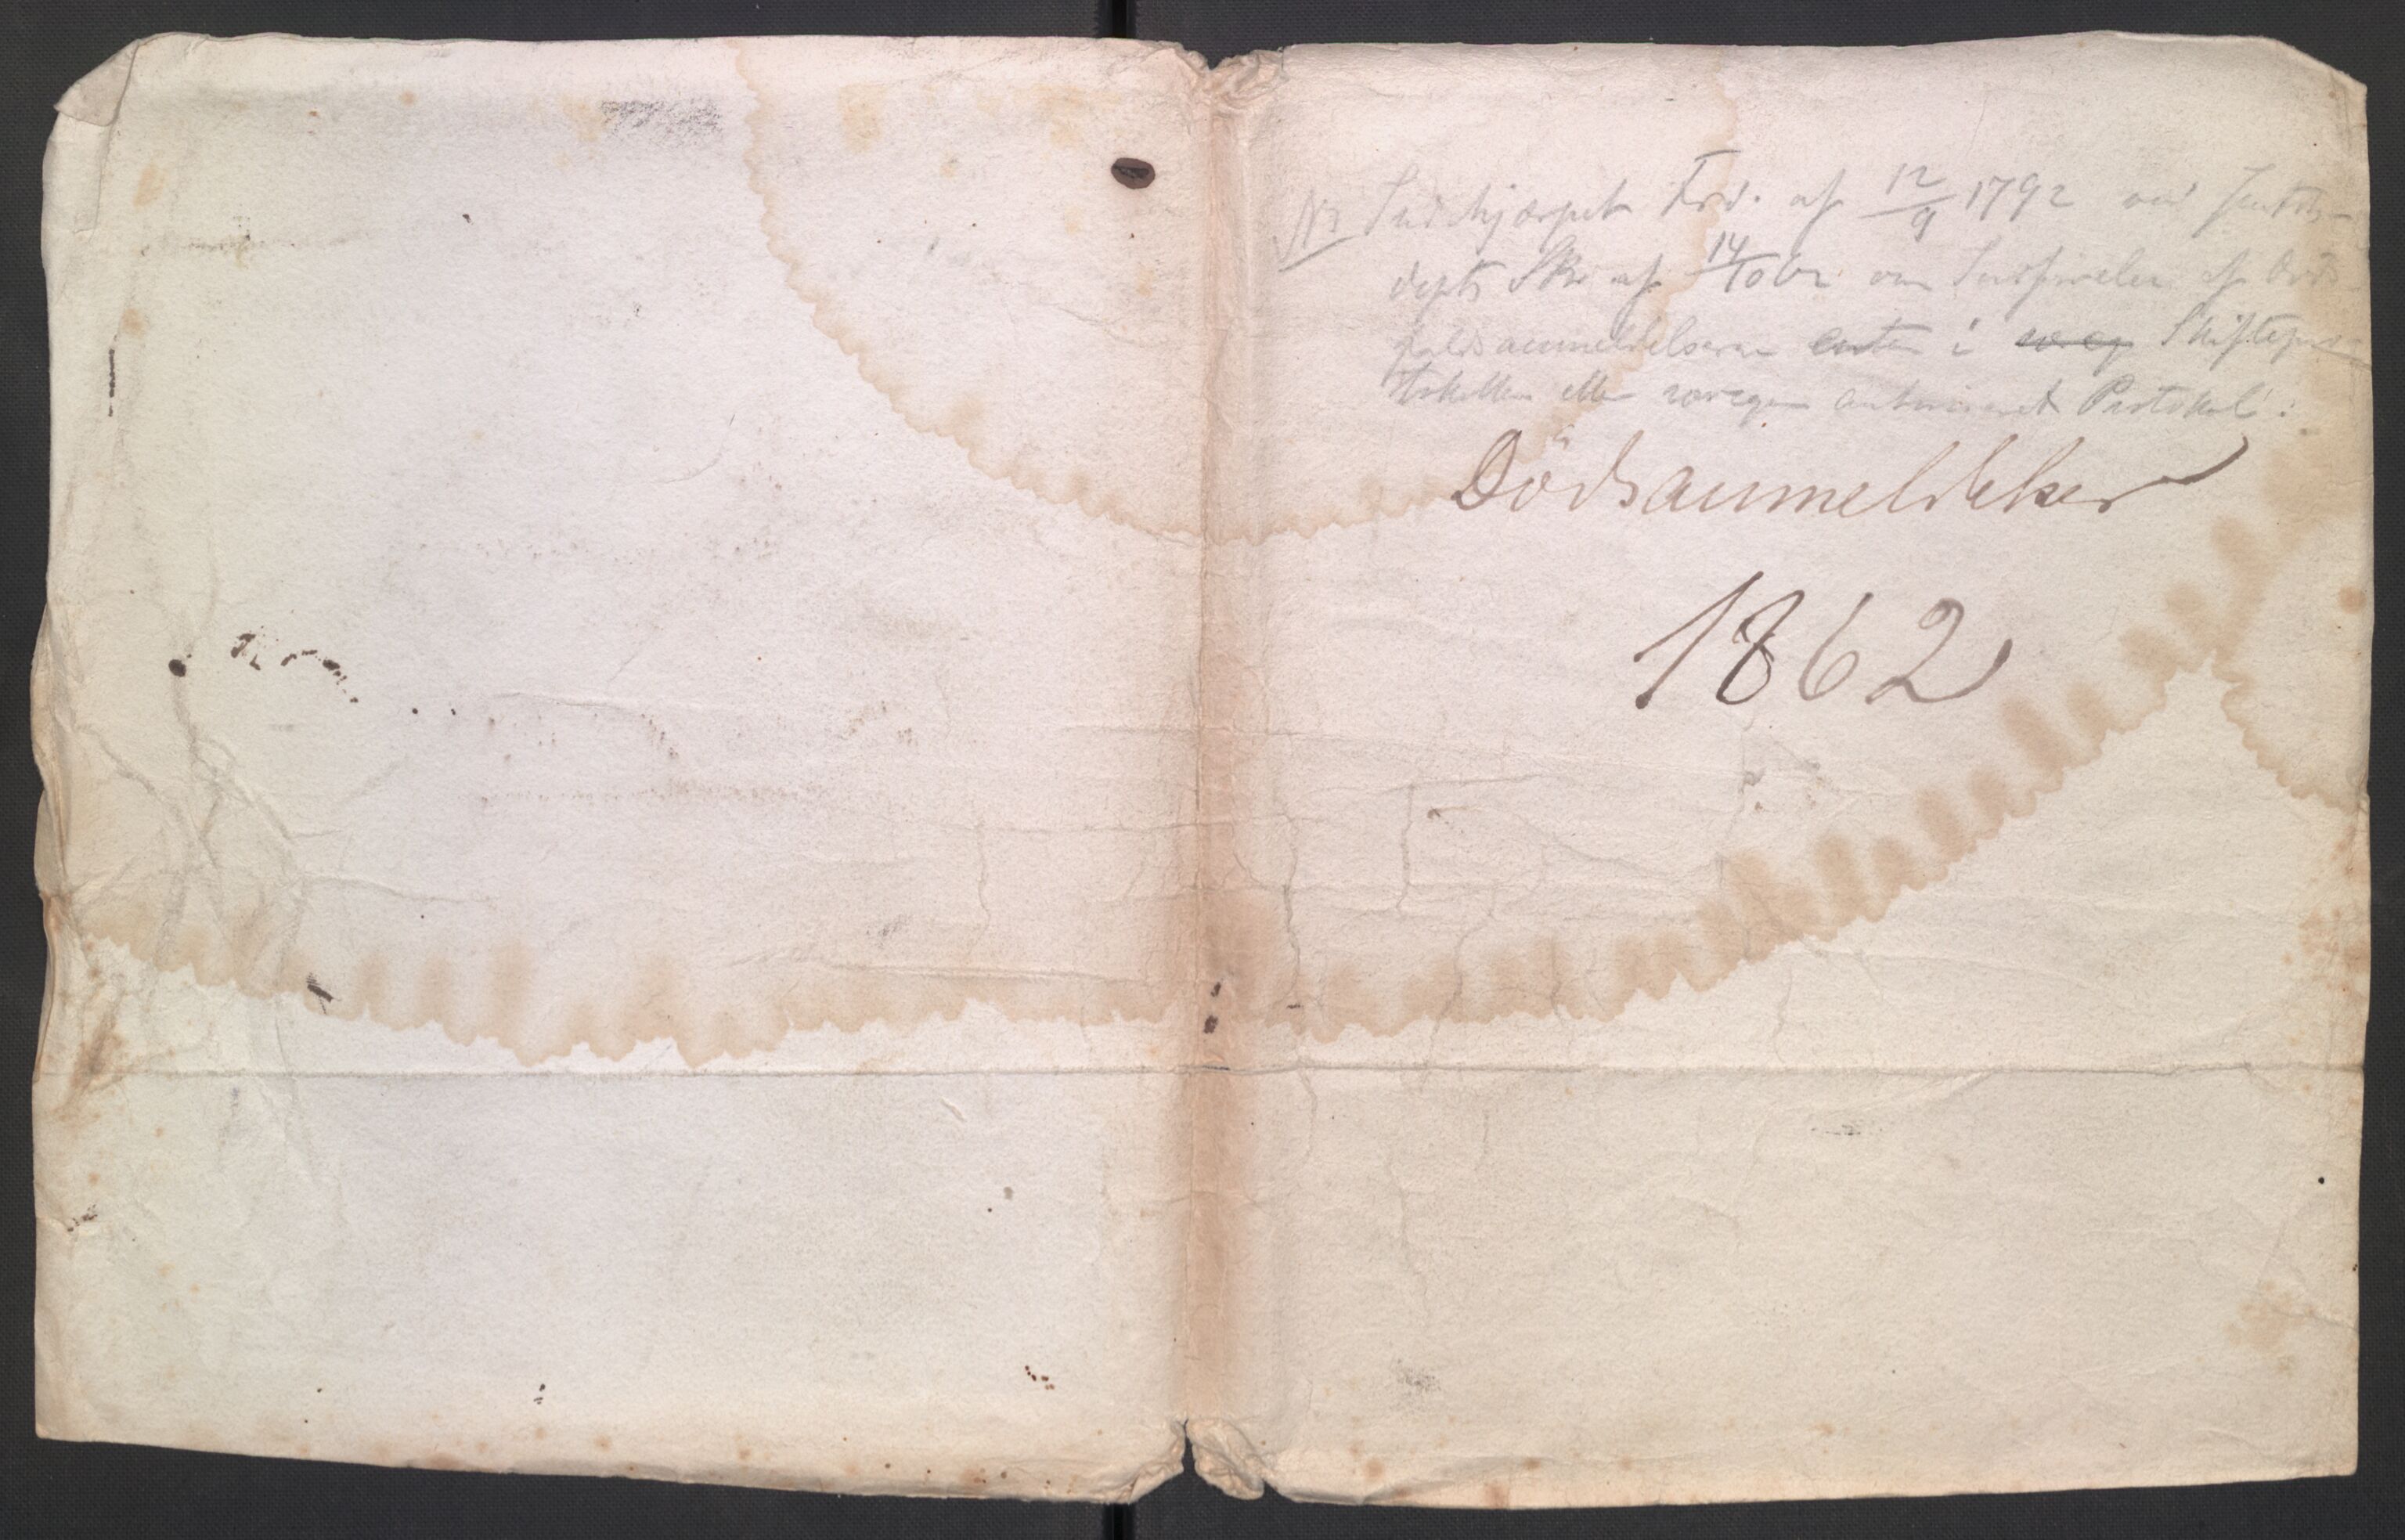 NB Indskjærpet Frd. af 12/9 1792 ved Justits-
depts Skr af 14/10 62 om Indførelsen af Døds-
faldsanmeldelserne enten i Skiftepro-
tokollen eller særegen autoriseret Protokol:
Dödsanmeldelser
1862